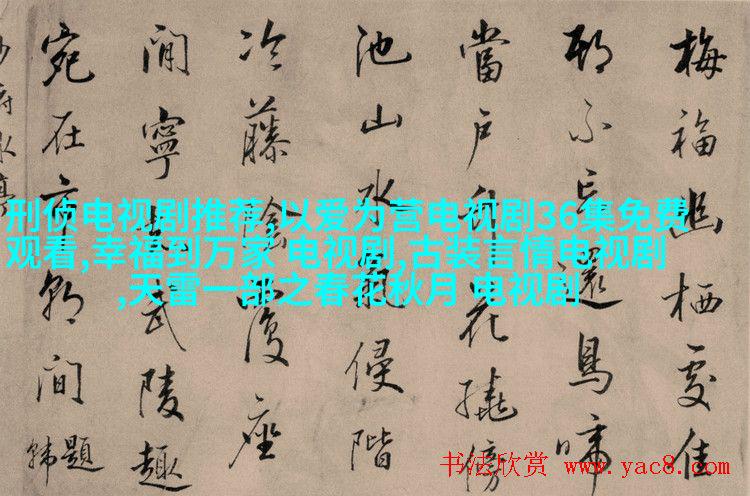 刑侦电视剧推荐,以爱为营电视剧36集免费
观看,幸福到万家 电视剧,古装言情电视剧
,天雷一部之春花秋月 电视剧
梅福幽栖處佳
期不忘還鳥啼
當戶竹花撓傍
池山水氣侵階
冷藤陰覆座
間寧知武陵趣
宛在市朝間
书法欣赏 www.yac8.com